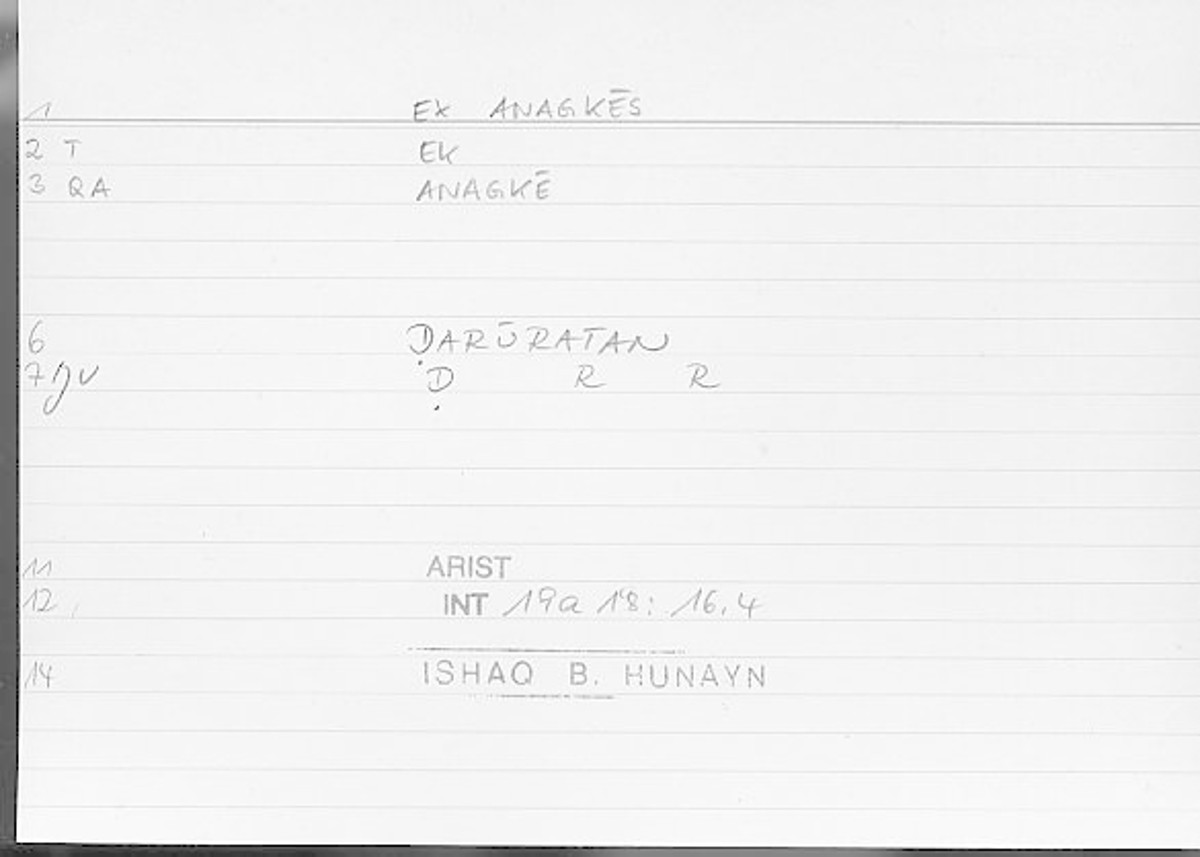 1 EX ANAGKĒS
2 T EK
3 QA ANAGKĒ
6 ḌARŪRATAN
7 Ḍ R R
11 ARIST
12 INT 19a 18: 16,4
14 ISHAQ B. HUNAYN